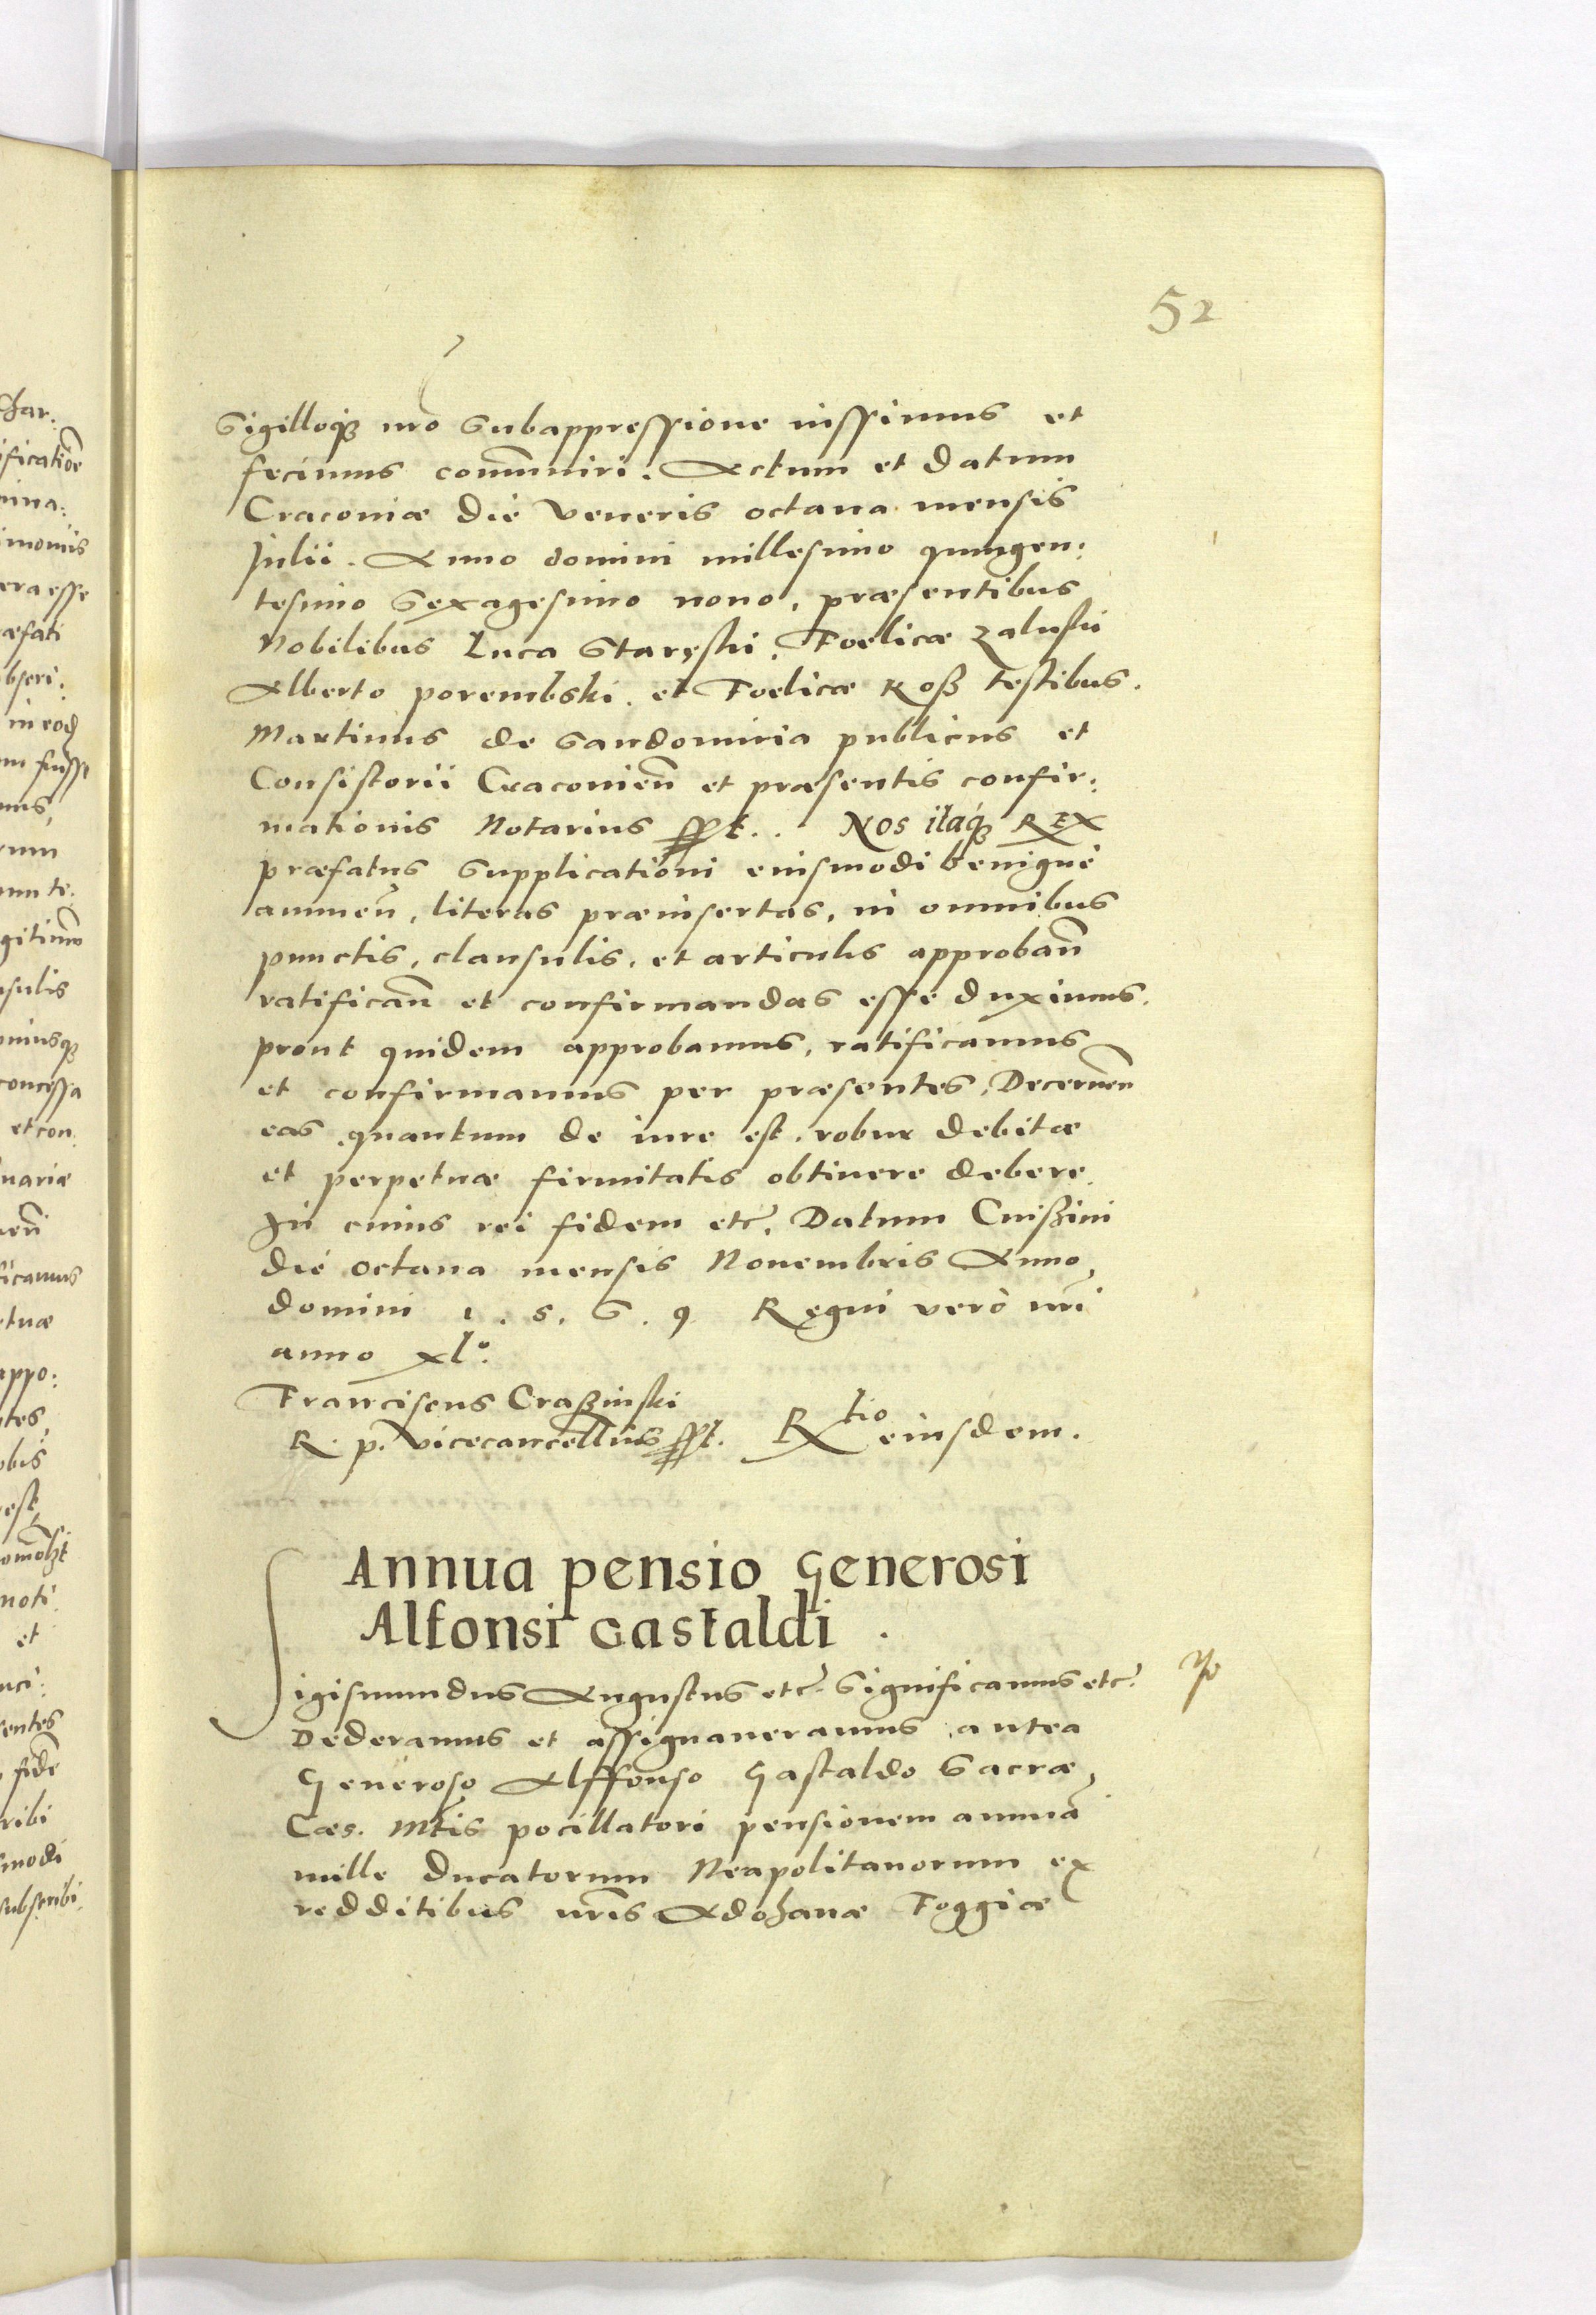 52
Sigilloq nro Subappressione iussimus et
fecimus communiri. Actum et datum
Cracoviæ die Veneris octava mensis
Julii. Anno domini millesimo quingen:
tesimo Sexagesimo nono, præsentibus
Nobilibus Luca Staręski, Foelice Zaluski
Alberto porembski. et Foelice Roß testibus.
Martinus de Sandomiria publicus et
Consistorii Cracovien̄ et præsentis confir:
mationis Notarius sspt. Nos itaq REX
præfatus Supplicationi eiusmodi benignè
annuen̄, literas præinsertas, in omnibus
punctis, clausulis, et articulis approban̄
ratifican̄ et confirmandas esse duximus.
prout quidem approbamus, ratificamus
et confirmamus per præsentes, Decernen̄
eas quantum de iure est, robur debitæ
et perpetuæ firmitatis obtinere debere.
In cuius rei fidem etc. Datum Cnißini
die octava mensis Novembris Anno
domini 1. 5. 6. 9 Regni verò nri
anno xlº.
Franciscus Craßinski
R. p. Vicecancellius sspt. Rtio eiusdem.
Annua pensio Generosi
Alfonsi Gastaldi.
Sigismundus Augustus etc. Significamus etc.
Dederamus et assignaveramus antea
Generoso Alffonso Gastaldo Sacræ
Cæs. Mtis pocillatori pensionem annuā
mille ducatorum Neapolitanorum ex
redditibus nris Adohanæ Foggiæ
char:
ificatiōe
mina:
imoniis
era esse
æfati
bscri:
in eod
m fuisse
mus,
rum
um te:
gitimo
usulis
miusq
concessa
et con
nariæ
ficamus
etuæ
appo:
ntes,
obis
est
noti:
et
nci:
sentes
fide
ribi
modi
subscribi.